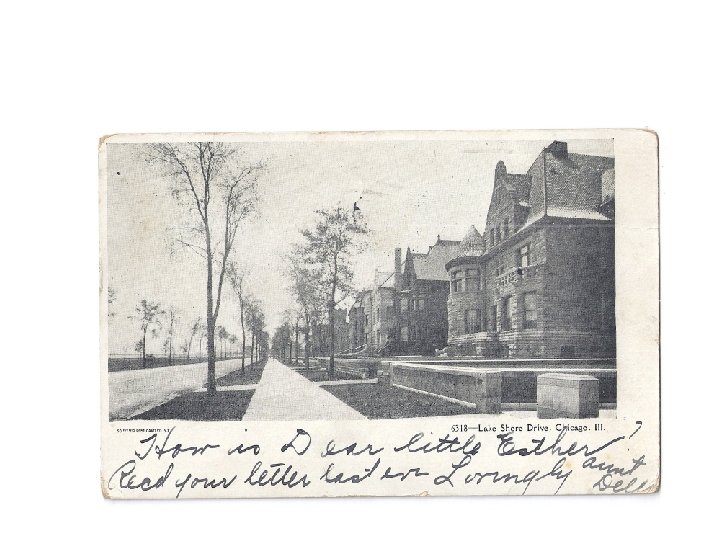 6318—Lake Shore Drive, Chicago, Ill.
How is Dear little Esther?
Recd your letter last eve Lovingly Aunt
Della